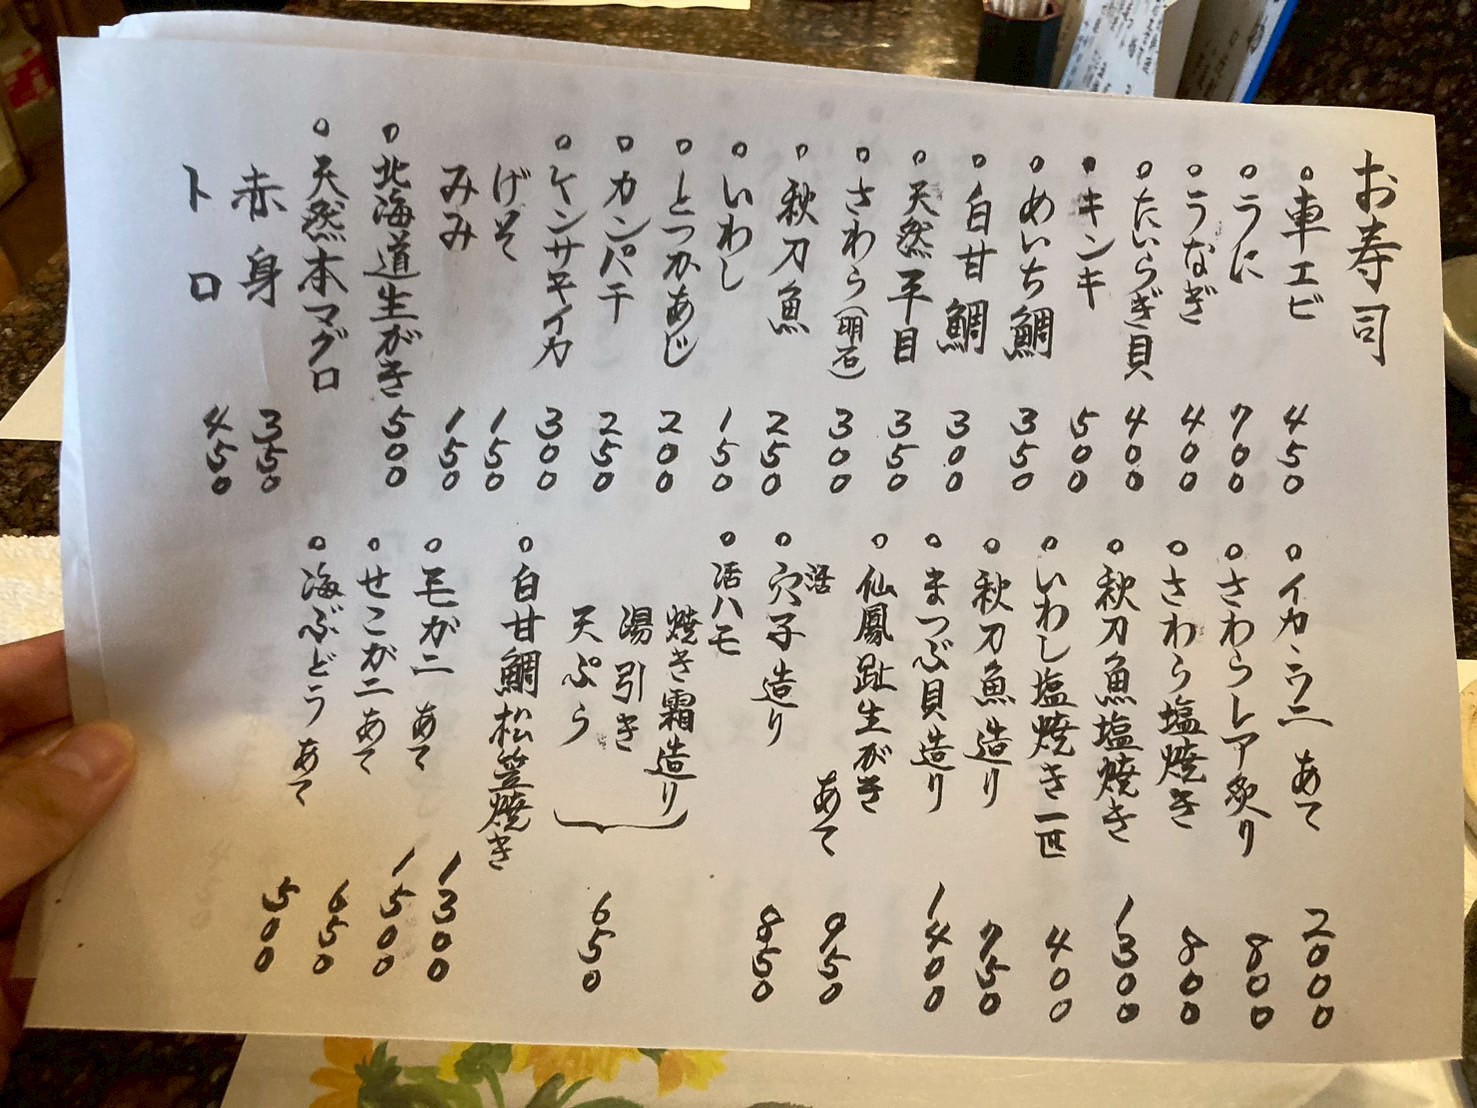 お寿司
○車エビ 450
○うに 700
○うなぎ 400
○たいらぎ貝 400
○キンキ 500
○めいち鯛 350
○白甘鯛 300
○天然平目 350
○さわら(明石) 300
○秋刀魚 250
○いわし 150
○とつかあじ 200
○カンパチ 250
○ケンサキイカ 300
げそ 150
みみ 150
○北海道生がき 500
○天然本マグロ
赤身 350
トロ 450
○イカ・ウニ あて 2000
○さわらレア炙り 800
○さわら塩焼き 800
○秋刀魚塩焼き 1300
○いわし塩焼き一匹 400
○秋刀魚造り 750
○まつぶ貝造り 1400
○仙鳳趾生がき あて 950
○活穴子造り 850
○活ハモ
焼き霜造り
湯引き
天ぷら 650
○白甘鯛松笠焼き 1300
○毛がニ あて 1500
○せこがニ あて 650
○海ぶどう あて 500